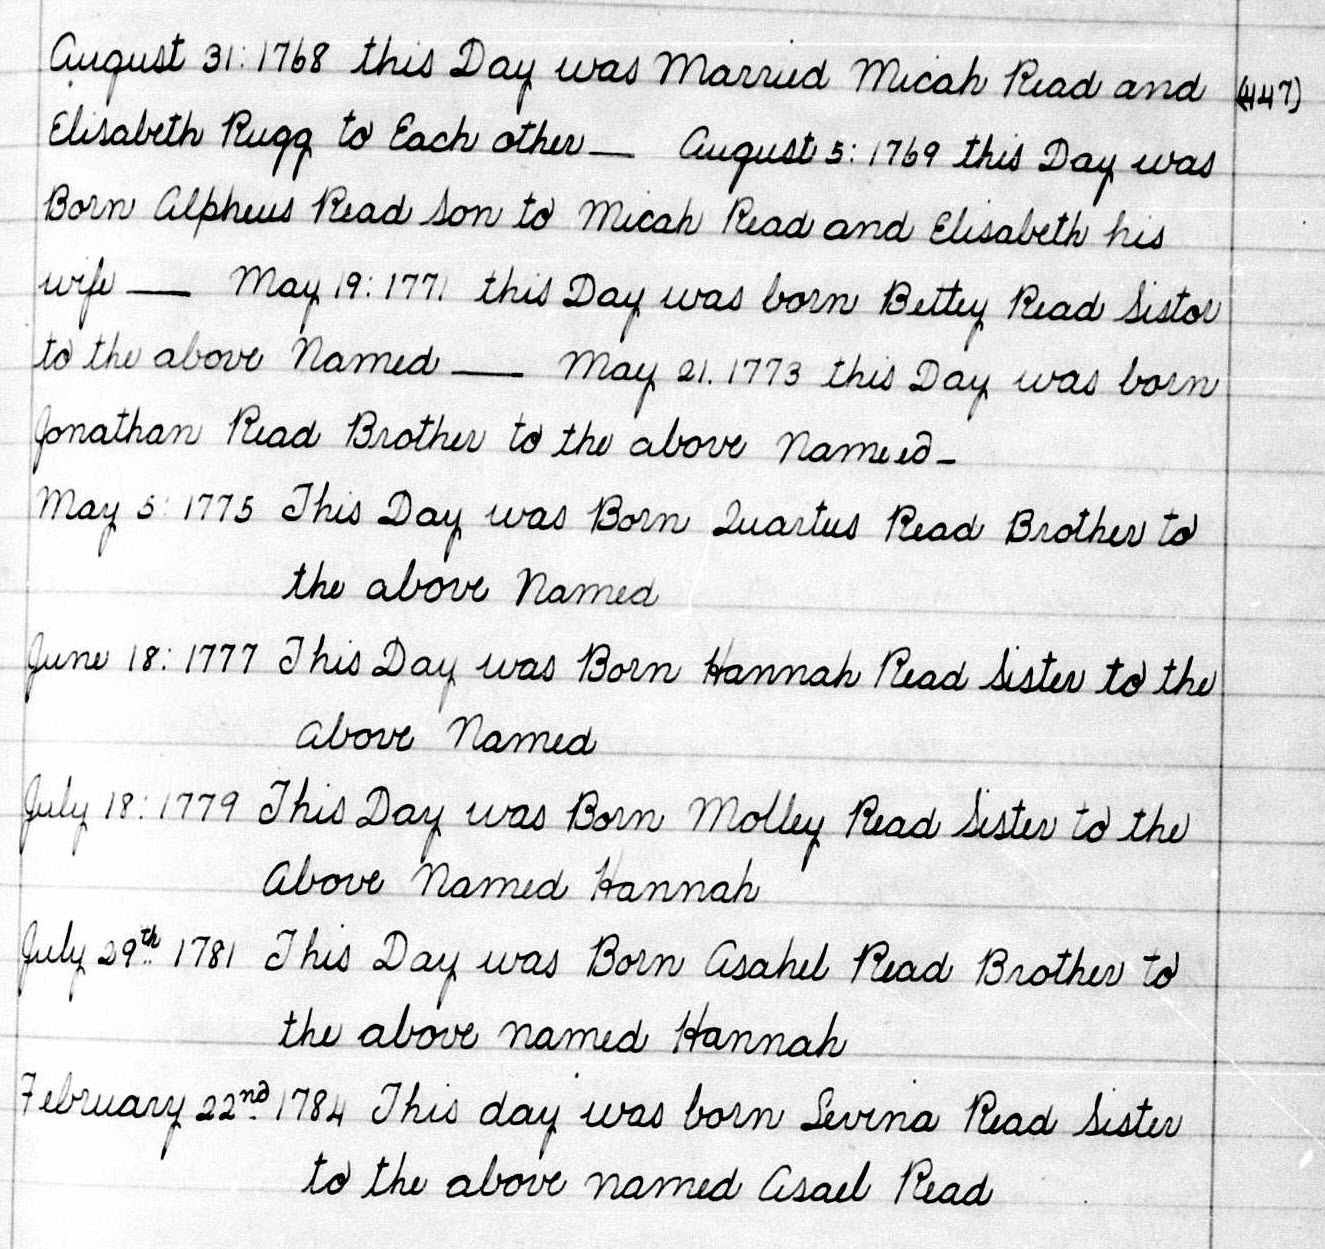 August 31: 1768 this Day was Married Micah Read and (447)
Elisabeth Rugg to Each other — August 5: 1769 this Day was
Born Alpheus Read Son to Micah Read and Elisabeth his
wife — May 19: 1771 this Day was born Bettey Read Sistor
to the above Named — May 21. 1773 this Day was born
Jonathan Read Brother to the above Nameed -
May 5: 1775 This Day was Born Quartus Read Brother to
the above Named
June 18: 1777 This Day was Born Hannah Read Sister to the
above Named
July 18: 1779 This Day was Born Molley Read Sister to the
Above Named Hannah
July 29th 1781 This Day was Born Asahel Read Brother to
the above named Hannah
February 22nd 1784 This day was born Levina Read Sister
to the above named Asael Read